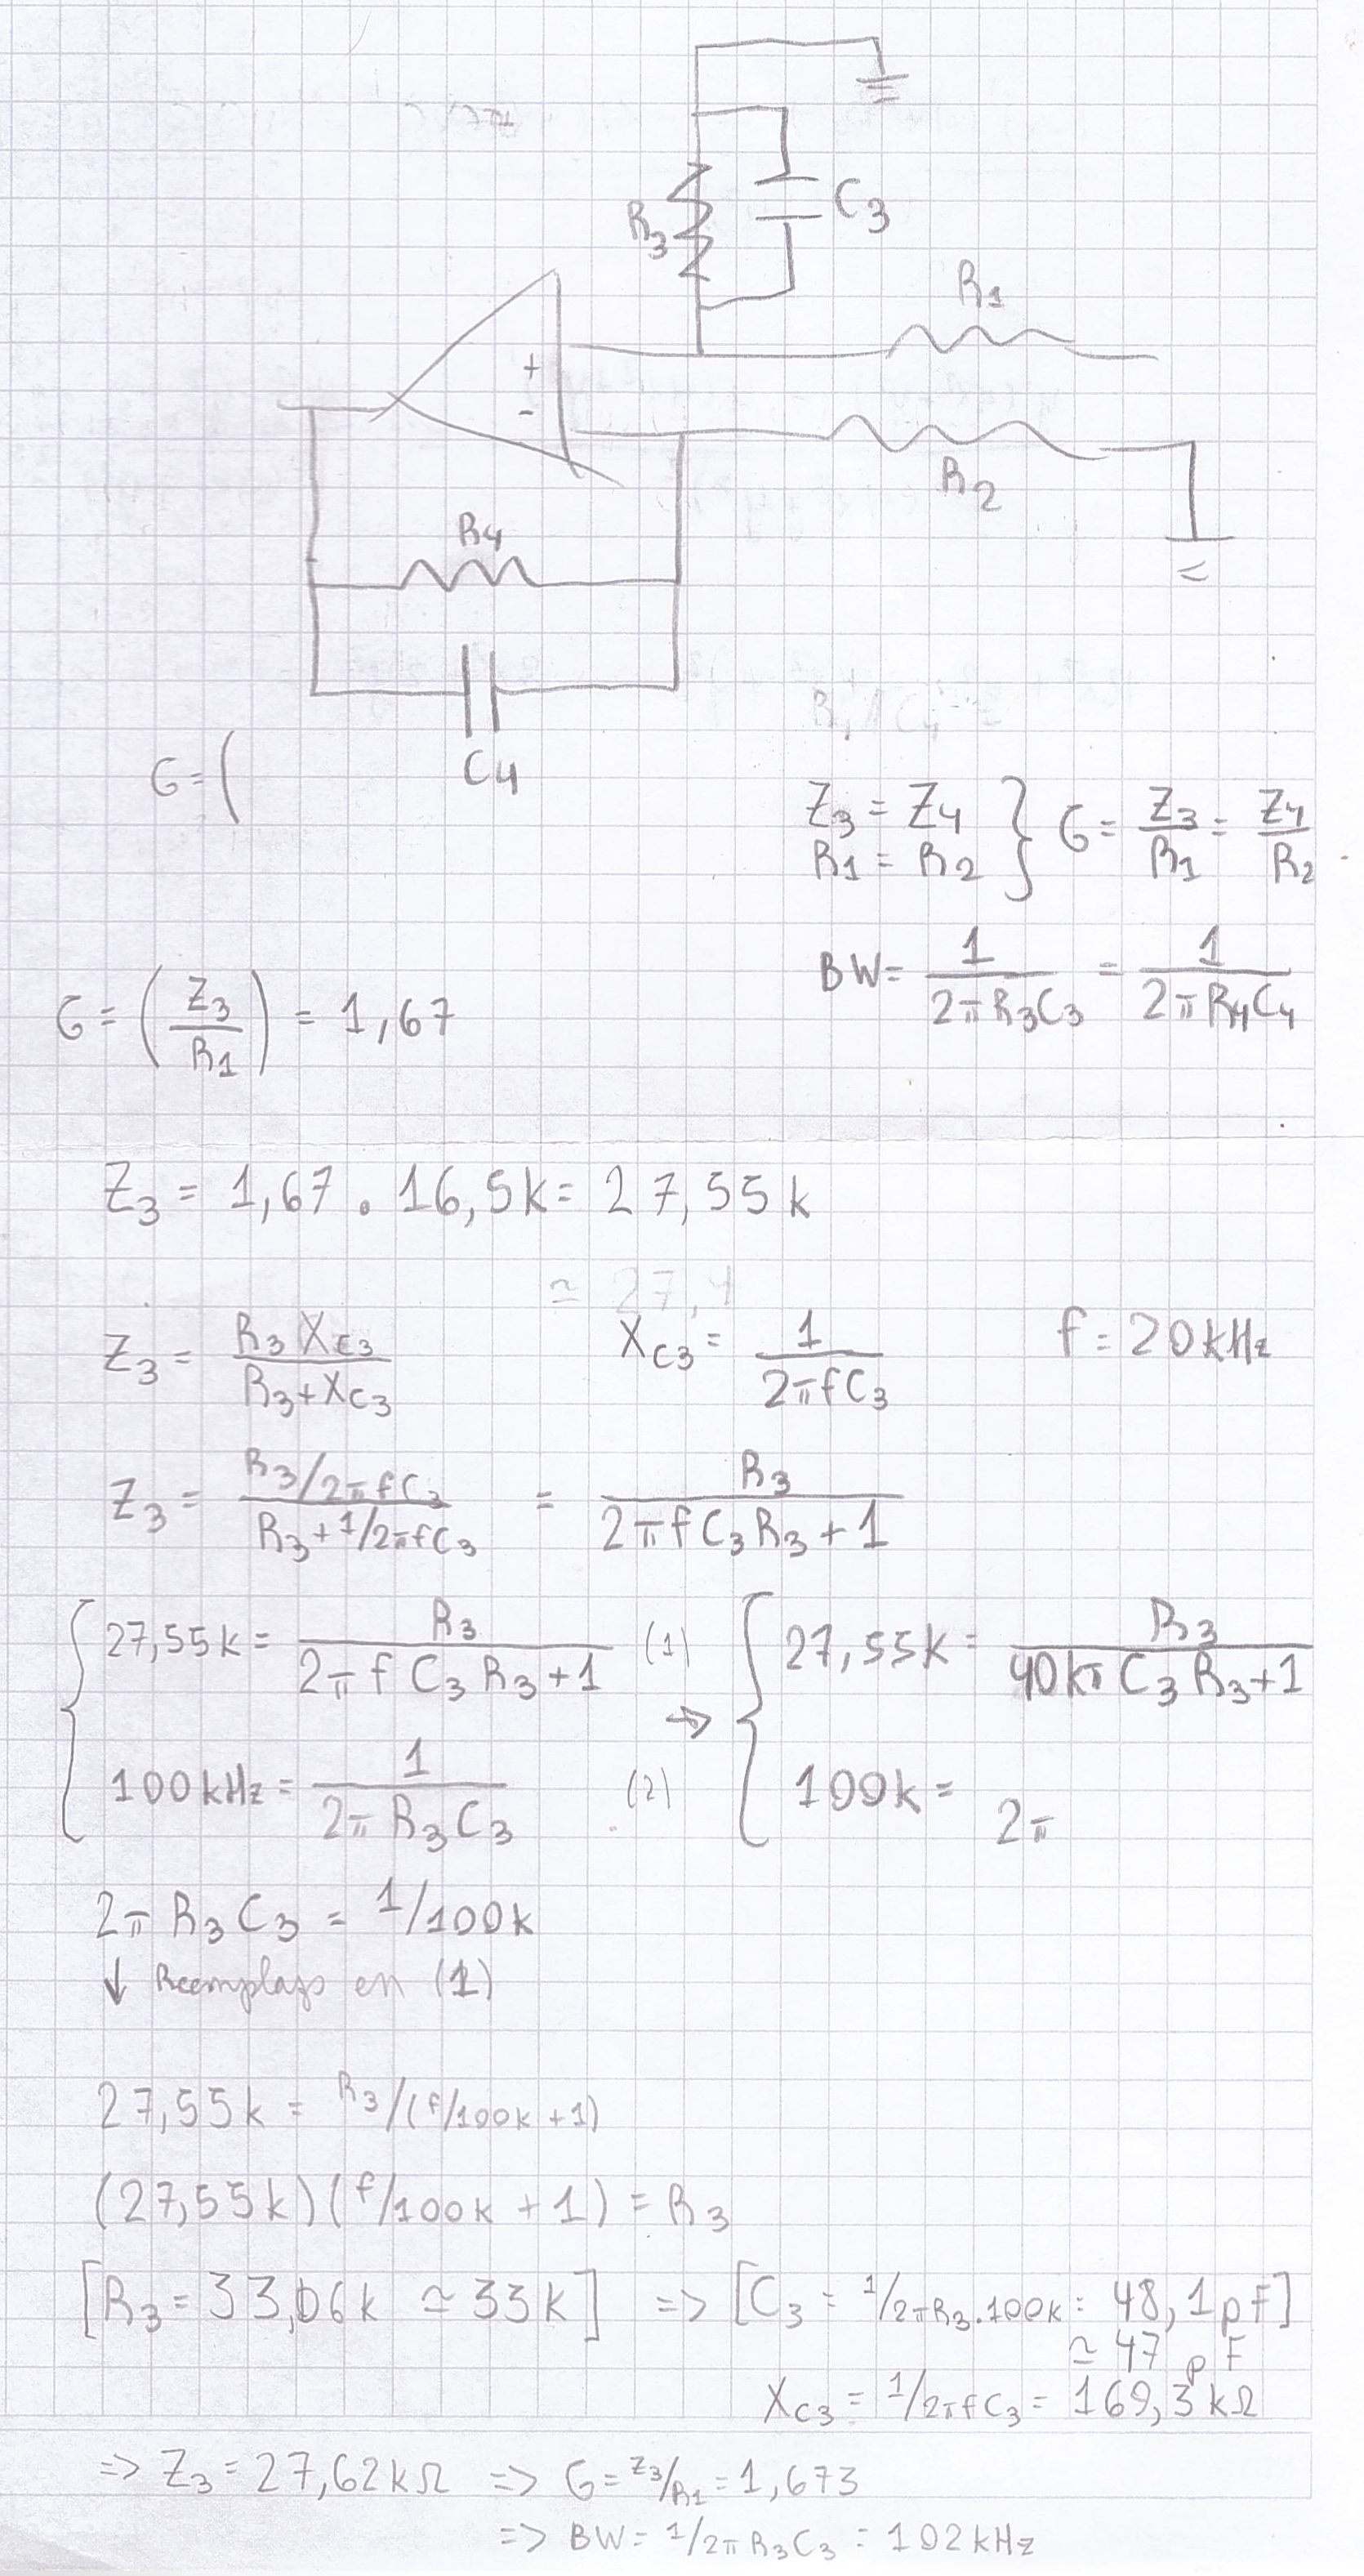 R3
C3
R1
+
-
R2
R4
C4
G = (
Z3 = Z4
R1 = R2 } G = Z3/R1 = Z4/R2
BW = 1/2πR3C3 = 1/2πR4C4
G = (Z3/R1) = 1,67
Z3 = 1,67 . 16,5k = 27,55k
≃ 27,4
Z3 = R3 XC3 / R3 + XC3
XC3 = 1/2πfC3
f = 20kHz
Z3 = R3/2πfC3 / R3 + 1/2πfC3 = R3 / 2πfC3R3 + 1
{ 27,55k = R3 / 2πfC3R3 + 1 (1) → { 27,55k = R3 / 40kπC3R3 + 1
100kHz = 1 / 2πR3C3 (2) 100k = 2π
2πR3C3 = 1/100k
↓ Reemplazo en (1)
27,55k = R3/(f/100k + 1)
(27,55k)(f/100k + 1) = R3
[R3 = 33,06k ≃ 33k] => [C3 = 1/2πR3.100k = 48,1pF]
≃ 47pF
XC3 = 1/2πfC3 = 169,3kΩ
=> Z3 = 27,62kΩ => G = Z3/R1 = 1,673
=> BW = 1/2πR3C3 = 102kHz